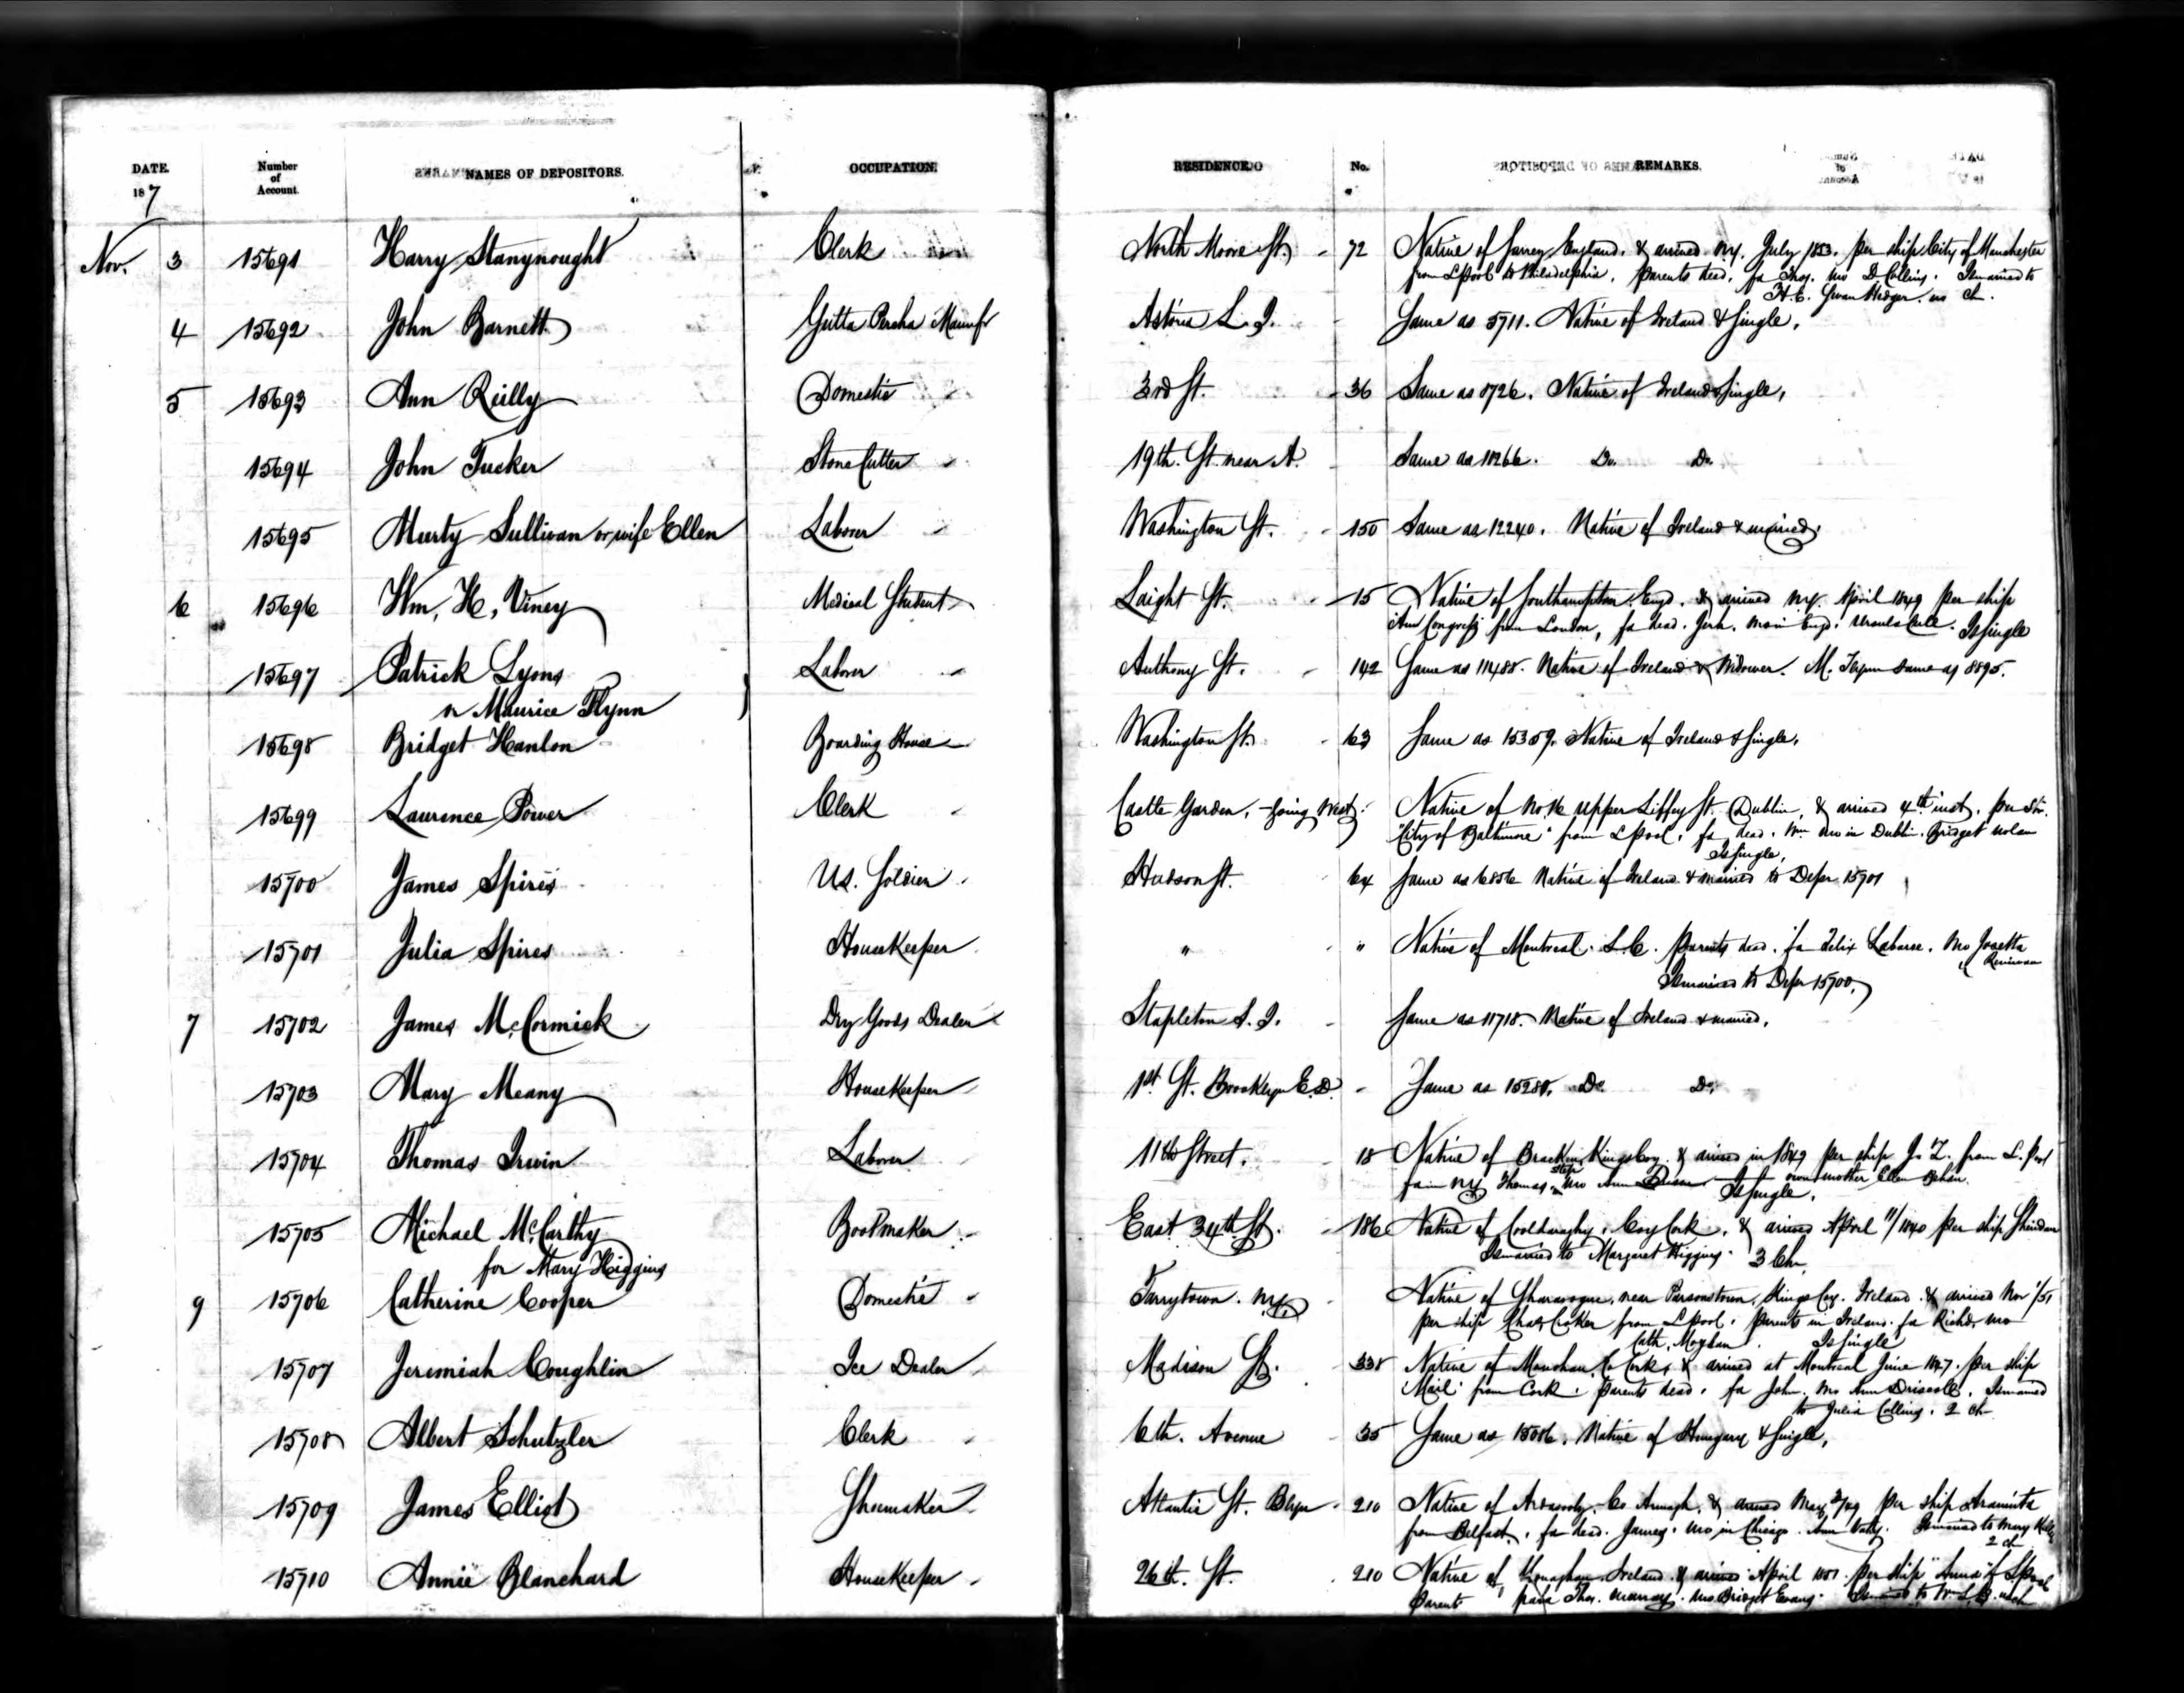 DATE. Number of Account. NAMES OF DEPOSITORS. OCCUPATION. RESIDENCE. No. REMARKS.
187
Nov. 3 15691 Harry Stanynought Clerk North Moore St. 72 Native of Surrey England. & arrived NY. July 1853. per ship City of Manchester
from LPool to Philadelphia. parents dead. fa Thos. mo D Collins. Is married to
H.E. no ch.
4 15692 John Barnett Gutta Percha Manufr Astoria L.I. Same as 5711. Native of Ireland & Single.
5 15693 Ann Reilly Domestic 3rd St. 36 Same as 8726. Native of Ireland & Single.
15694 John Tucker Stone Cutter 19th. St. near A. Same as 11266. Do. Do.
15695 Murty Sullivan or wife Ellen Laborer Washington St. 150 Same as 12240. Native of Ireland & married.
6 15696 Wm. H. Viney Medical Student Laight St. 15 Native of Southampton Engd. & arrived NY. April 1849 per ship
Congress from London, fa dead. mo in Engd. Is single
15697 Patrick Lyons Laborer Anthony St. 142 Same as 11488. Native of Ireland & Widower. M. Flynn same as 8895.
or Maurice Flynn
15698 Bridget Hanlon Boarding House Washington St. 63 Same as 15359. Native of Ireland & Single.
15699 Laurence Power Clerk Castle Garden, going West. Native of No. 16 Upper Liffey St. Dublin, & arrived 4th inst. per Str.
"City of Baltimore" from LPool. fa dead. Wm mo in Dublin. Bridget Nolan
Is single.
15700 James Spires US. Soldier Hudson St. 64 Same as 6856 Native of Ireland & married to Depr 15701
15701 Julia Spires HouseKeeper " " Native of Montreal. L.C. Parents dead. fa Felix Labaree. mo Josetta
Is married to Depr 15700.
7 15702 James McCormick Dry Goods Dealer Stapleton S.I. Same as 11718. Native of Ireland & married.
15703 Mary Meany HouseKeeper 1st. St. Brooklyn E.D. Same as 15280. Do. Do.
15704 Thomas Irwin Laborer 11th Street. 18 Native of Bracken, Kings Coy. & arrived in 1849 per ship from L.Pool
fa in NY Thomas. step mo Ann own mother Ellen Behan.
Is single.
15705 Michael McCarthy Bootmaker East 34th St. 186 Native of Coy Cork. & arrived April 11/1840 per ship Sheridan
for Mary Higgins Is married to Margaret Higgins. 3 Ch.
9 15706 Catherine Cooper Domestic Tarrytown. NY. Native of Sharavogue, near Parsonstown, Kings Coy. Ireland. & arrived Nov 1/51
per ship Chas Croker from LPool. parents in Ireland. fa Richd. mo
Cath. Moghan. Is single
15707 Jeremiah Coughlin Ice Dealer Madison St. 338 Native of Co Cork, & arrived at Montreal June 1847. per ship
Mail from Cork. parents dead. fa John. mo Ann Driscoll. Is married
to Julia Collins. 2 ch
15708 Albert Schutzler Clerk 6th. Avenue 35 Same as 15086. Native of Hungary & single.
15709 James Elliot Shoemaker Atlantic St. Blyn 210 Native of Co Armagh. & arrived May per ship Araminta
from Belfast. fa dead. James. mo in Chicago. Ann Is married to Mary
2 ch
15710 Annie Blanchard HouseKeeper 26th. St. 210 Native of Monaghan Ireland. & arrived April per ship LPool
parents Thos. Murray. mo Bridget Evans. Is married to Wm